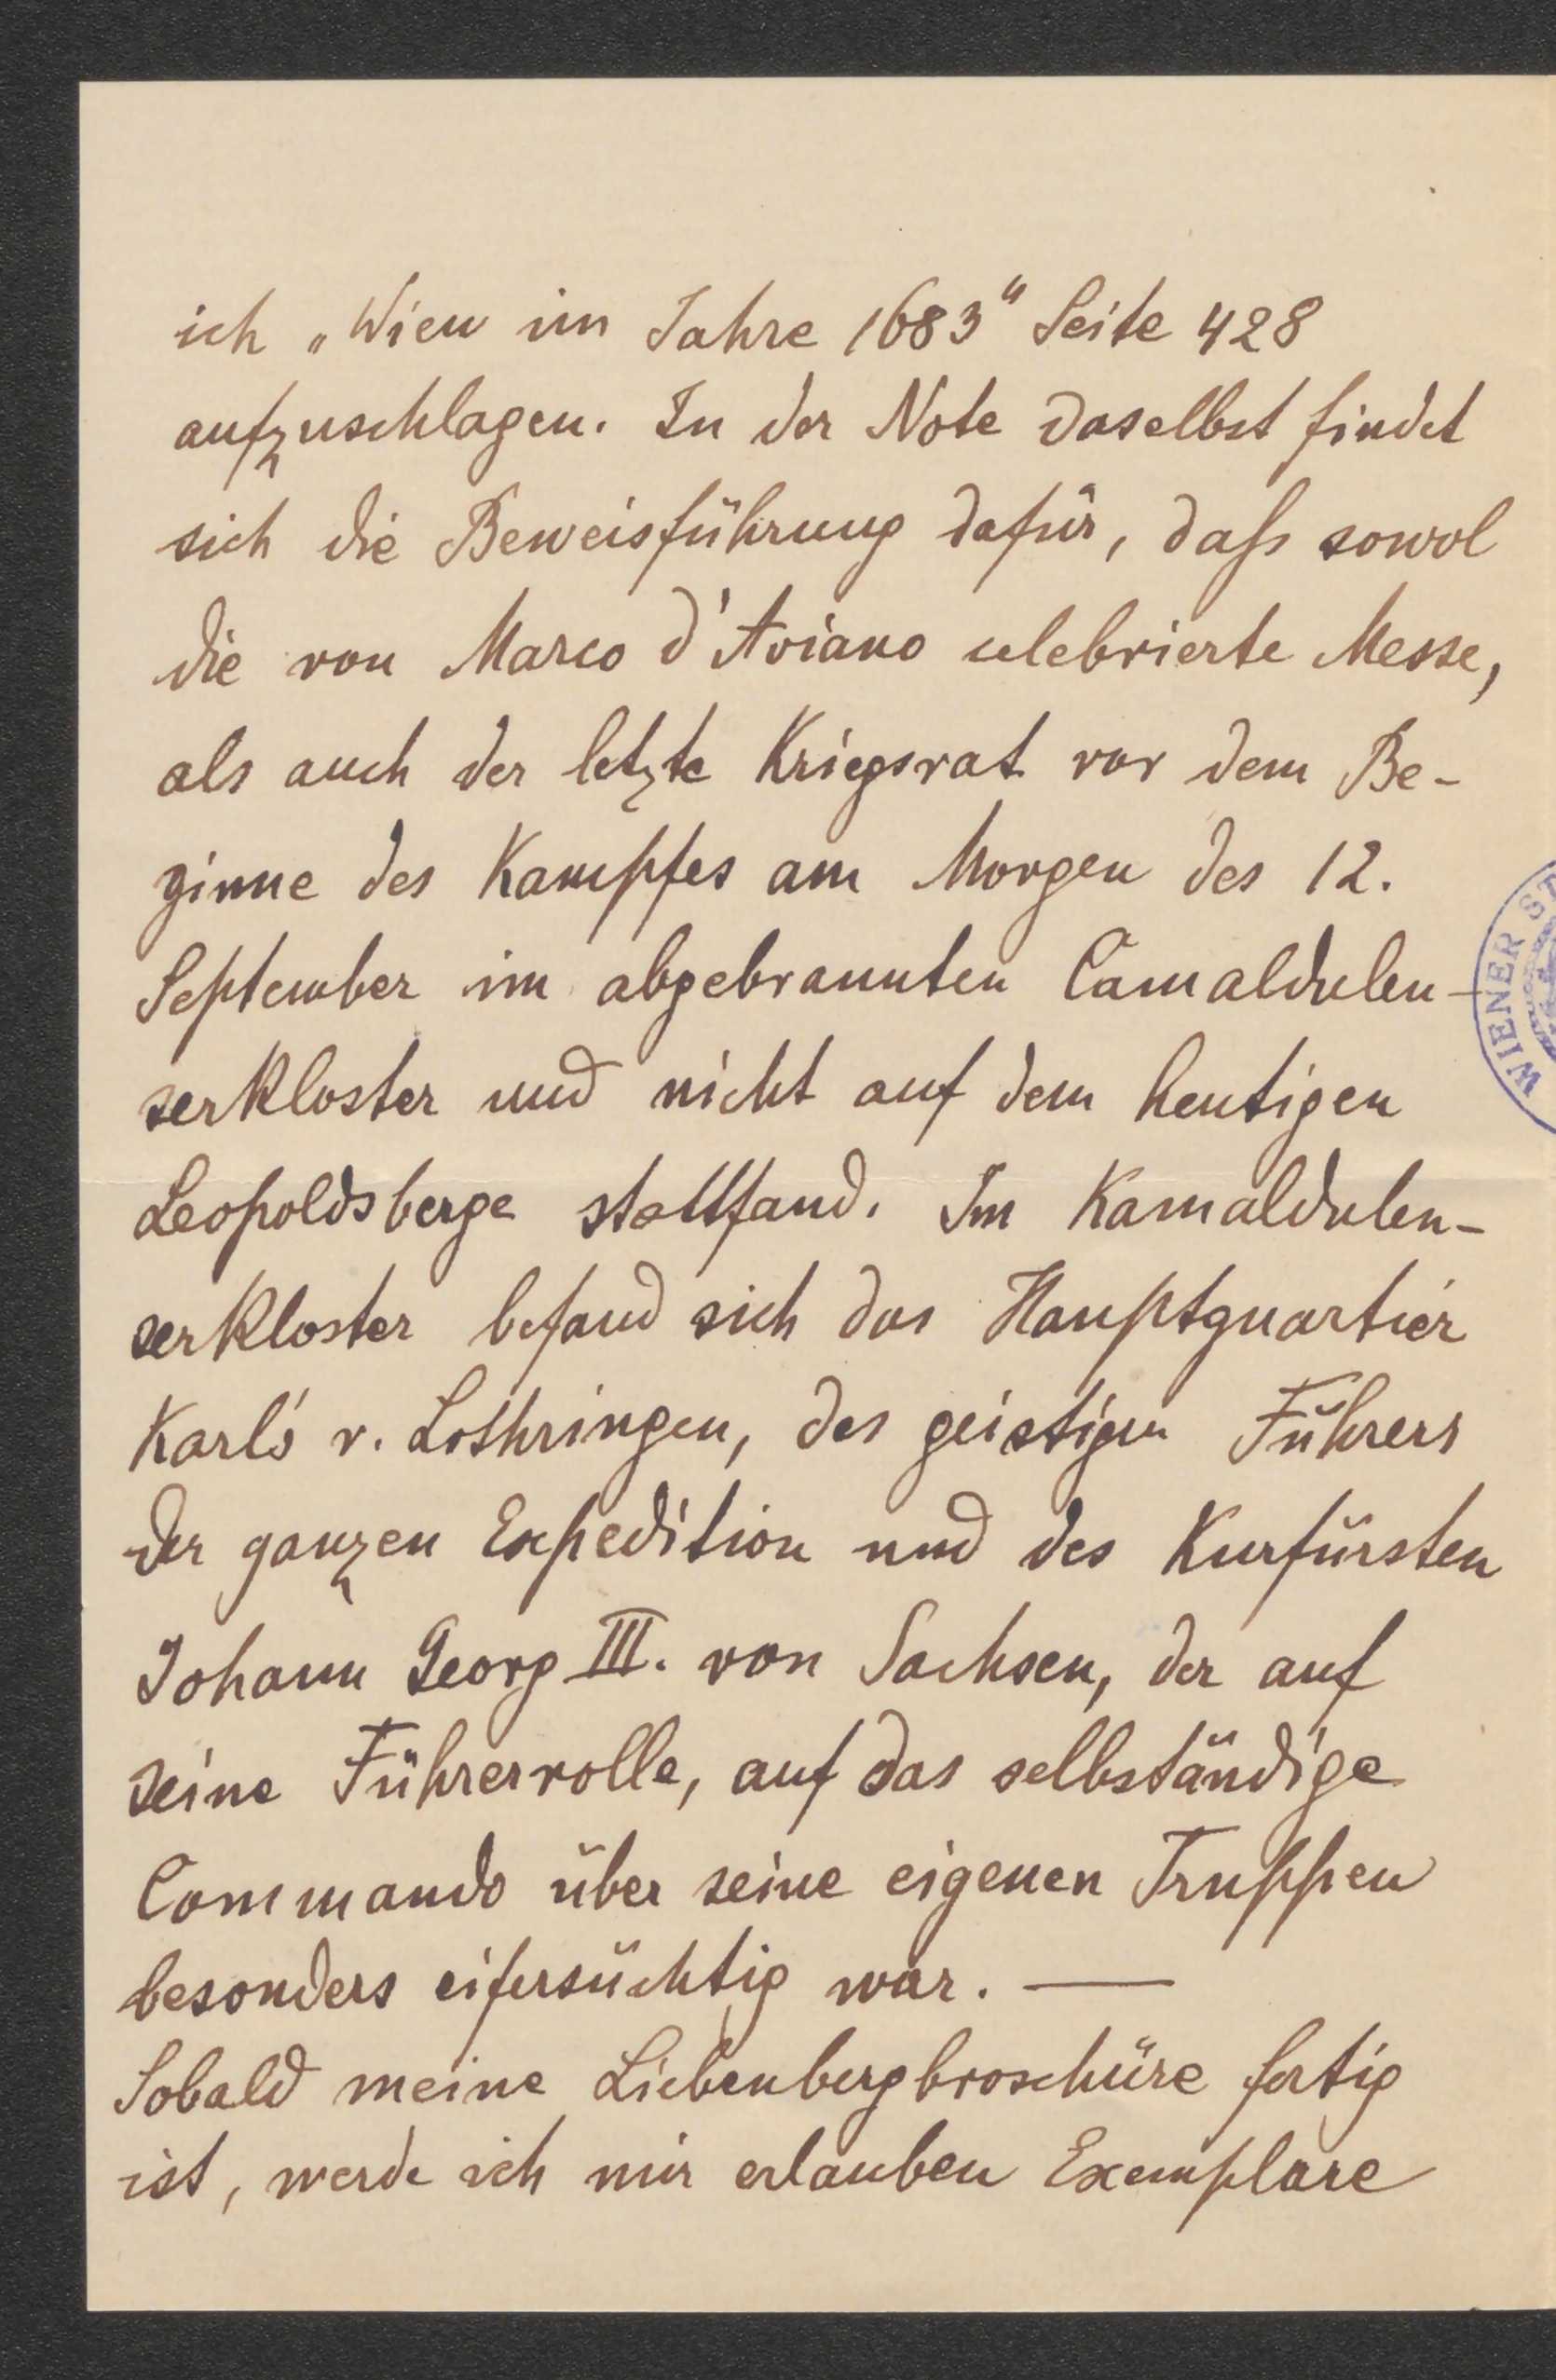 ich „Wien im Jahre 1683“ Seite 428
aufzuschlagen. In der Note daselbst findet
sich die Beweisführung dafür, daß sowol
die von Marco d'Aviano celebrierte Messe,
als auch der letzte Kriegsrat vor dem Be-
ginne des Kampfes am Morgen des 12.
September im abgebrannten Camaldulen-
serkloster und nicht auf dem heutigen
Leopoldsberge stattfand. Im Kamaldulen-
serkloster befand sich das Hauptquartier
Karl's v. Lothringen, des geistigen Führers
der ganzen Expedition und des Kurfürsten
Johann Georg III. von Sachsen, der auf
seine Führerrolle, auf das selbständige
Commando über seine eigenen Truppen
besonders eifersüchtig war. —
Sobald meine Liebenbergbroschüre fertig
ist, werde ich mir erlauben Exemplare
WIENER ST